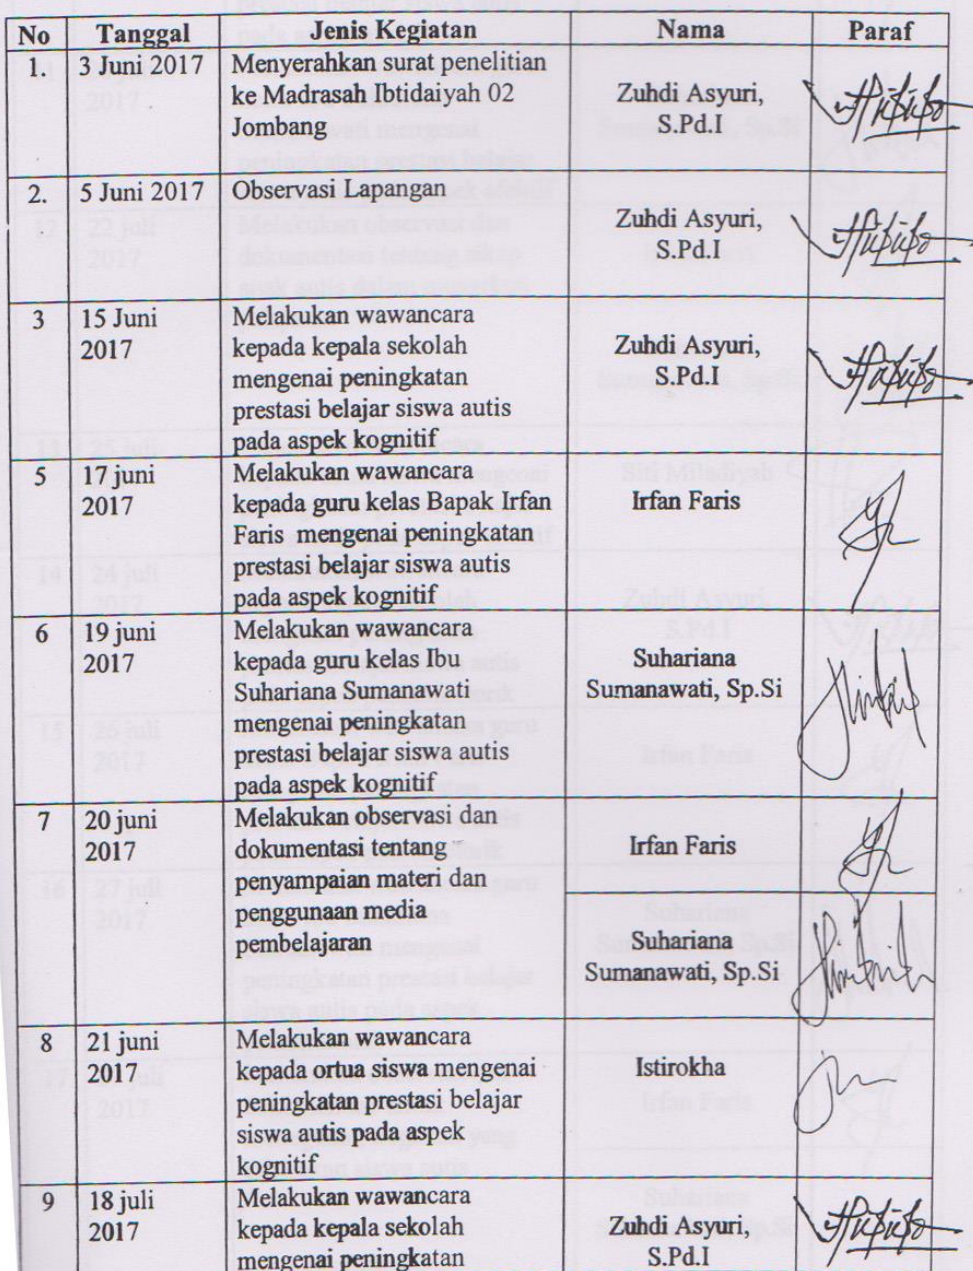 No Tanggal Jenis Kegiatan Nama Paraf
1. 3 Juni 2017 Menyerahkan surat penelitian
ke Madrasah Ibtidaiyah 02
Jombang
Zuhdi Asyuri,
S.Pd.I
2. 5 Juni 2017 Observasi Lapangan
Zuhdi Asyuri,
S.Pd.I
3 15 Juni
2017
Melakukan wawancara
kepada kepala sekolah
mengenai peningkatan
prestasi belajar siswa autis
pada aspek kognitif
Zuhdi Asyuri,
S.Pd.I
5 17 juni
2017
Melakukan wawancara
kepada guru kelas Bapak Irfan
Faris mengenai peningkatan
prestasi belajar siswa autis
pada aspek kognitif
Irfan Faris
6 19 juni
2017
Melakukan wawancara
kepada guru kelas Ibu
Suhariana Sumanawati
mengenai peningkatan
prestasi belajar siswa autis
pada aspek kognitif
Suhariana
Sumanawati, Sp.Si
7 20 juni
2017
Melakukan observasi dan
dokumentasi tentang
penyampaian materi dan
penggunaan media
pembelajaran
Irfan Faris
Suhariana
Sumanawati, Sp.Si
8 21 juni
2017
Melakukan wawancara
kepada ortua siswa mengenai
peningkatan prestasi belajar
siswa autis pada aspek
kognitif
Istirokha
9 18 juli
2017
Melakukan wawancara
kepada kepala sekolah
mengenai peningkatan
Zuhdi Asyuri,
S.Pd.I